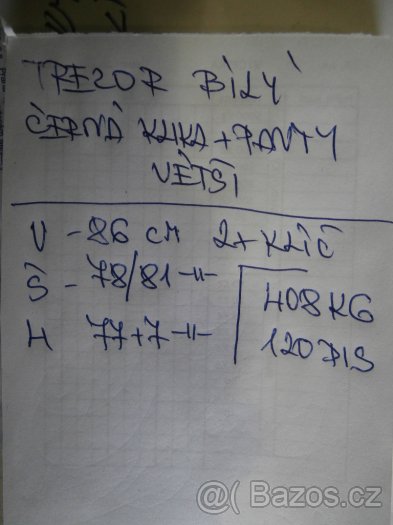 TREZOR BÍLÝ
ČERNÁ KLIKA + PANTY
VĚTŠÍ
V - 86 cm 2 + KLÍČ
Š - 78/81 -||-
H 77+7 -||-
408 KG
120 DIS
@( Bazos.cz